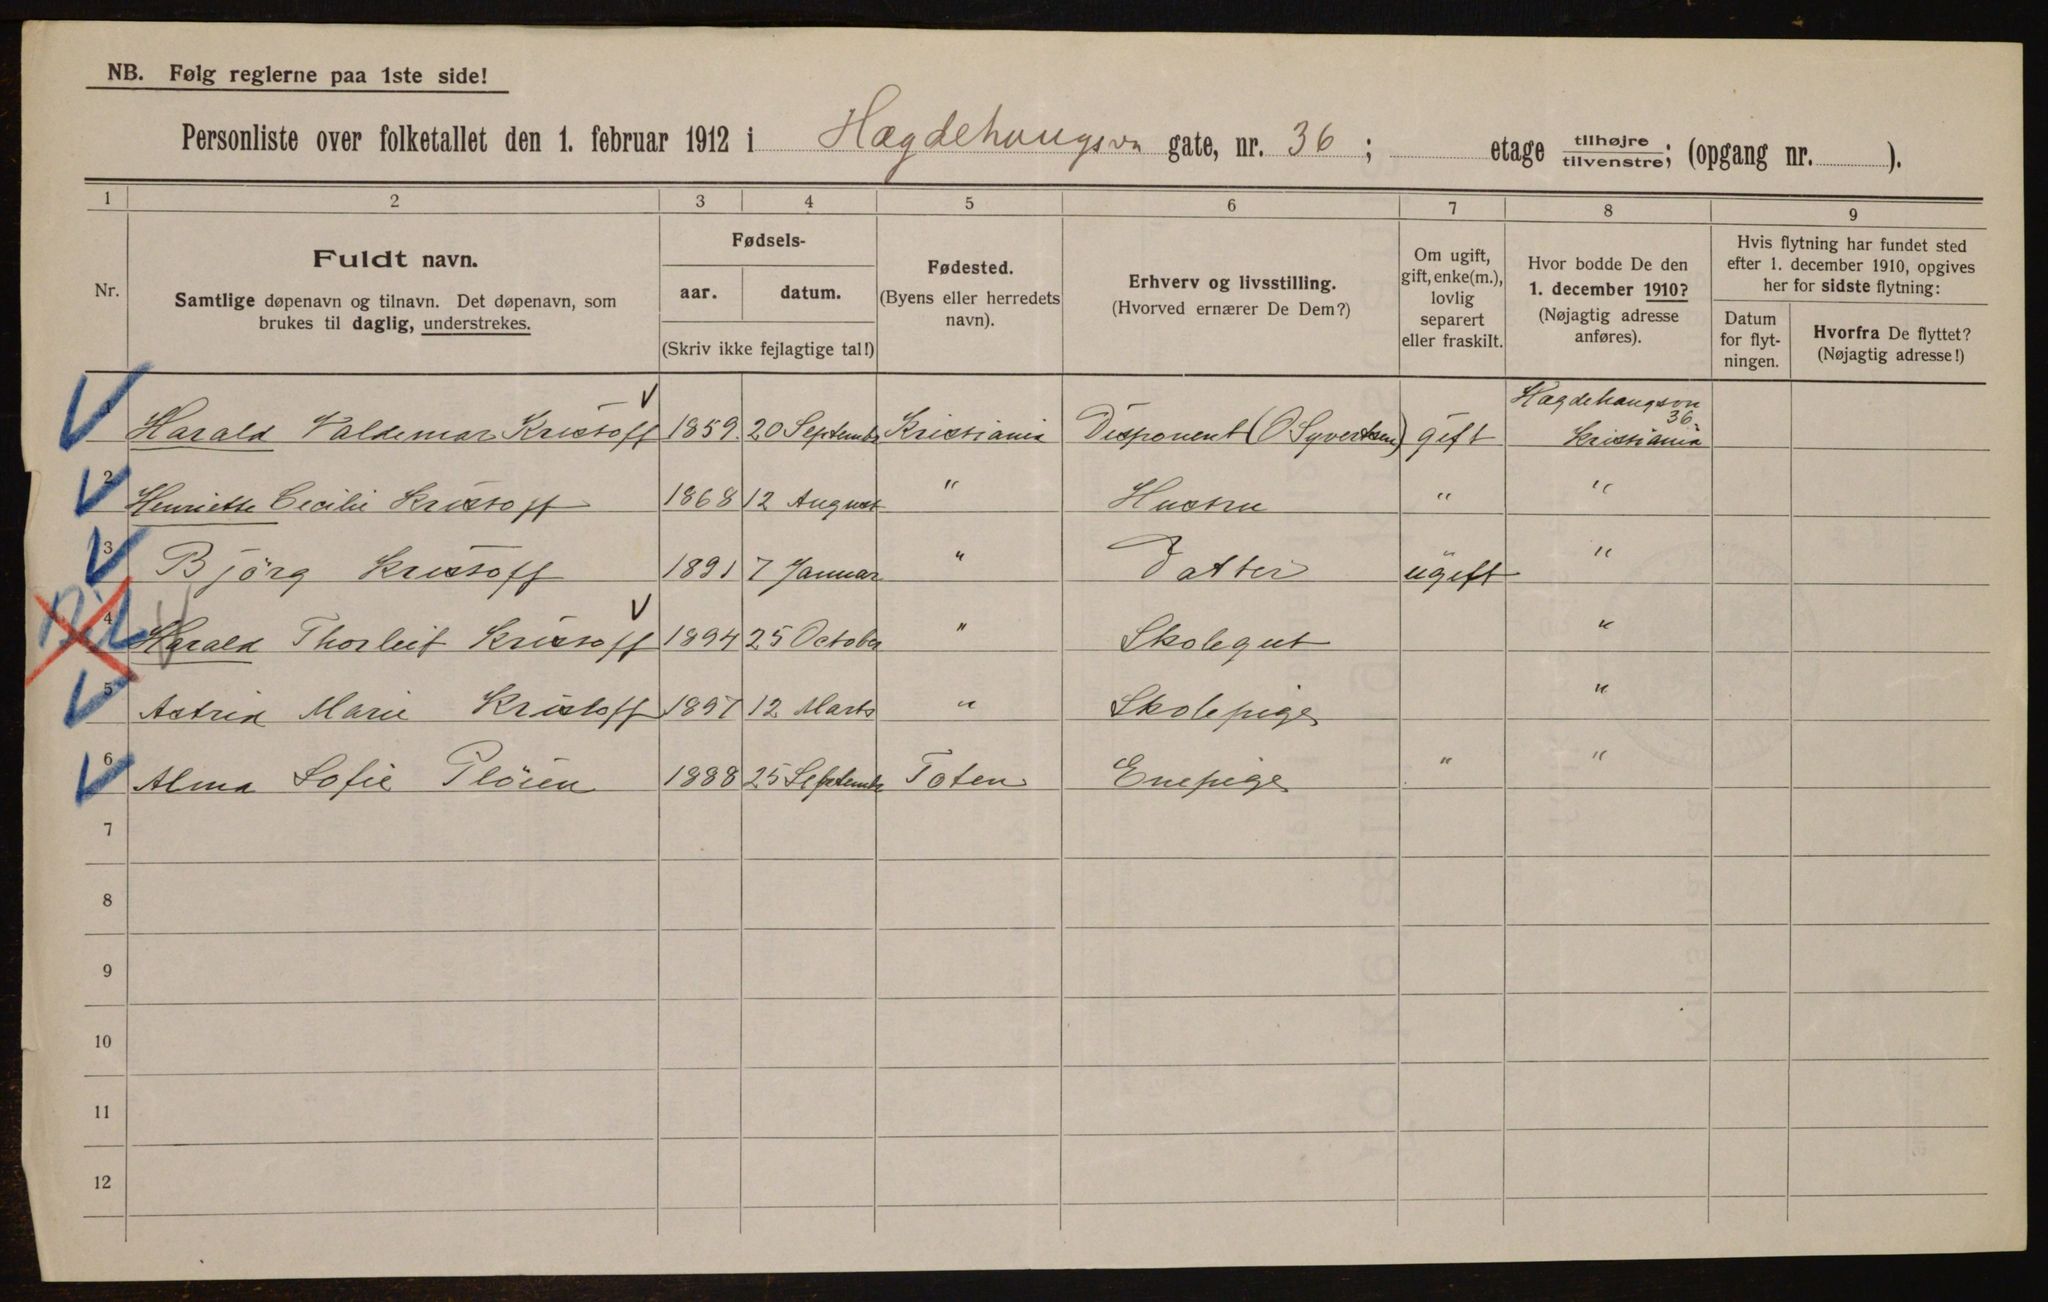 NB. Følg reglerne paa 1ste side!
Personliste over folketallet den 1. februar 1912 i Hægdehaugsvn gate, nr. 36; etage tilhøjre/tilvenstre; (opgang nr. ).
1 2 3 4 5 6 7 8 9
Nr.
Fuldt navn.
Samtlige døpenavn og tilnavn. Det døpenavn, som
brukes til daglig, understrekes.
Fødsels-
aar. datum.
(Skriv ikke fejlagtige tal!)
Fødested.
(Byens eller herredets
navn).
Erhverv og livsstilling.
(Hvorved ernærer De Dem?)
Om ugift,
gift, enke(m.),
lovlig
separert
eller fraskilt.
Hvor bodde De den
1. december 1910?
(Nøjagtig adresse
anføres).
Hvis flytning har fundet sted
efter 1. december 1910, opgives
her for sidste flytning:
Datum
for flyt-
ningen.
Hvorfra De flyttet?
(Nøjagtig adresse!)
1 Harald Valdemar Kristoff 1859 20 Septembr Kristiania Disponent (O Syvertsen) gift Hægdehaugsvn 36 Kristiania
2 Henriette Cecilie Kristoff 1868 12 August " Hustru " "
3 Björg Kristoff 1891 7 Januar " Datter ugift "
4 Harald Thorleif Kristoff 1894 25 October " Skolegut "
5 Astrid Marie Kristoff 1897 12 Marts " Skolepige "
6 Alma Sofie Plöien 1888 25 Septembr Toten Enepige " "
7
8
9
10
11
12